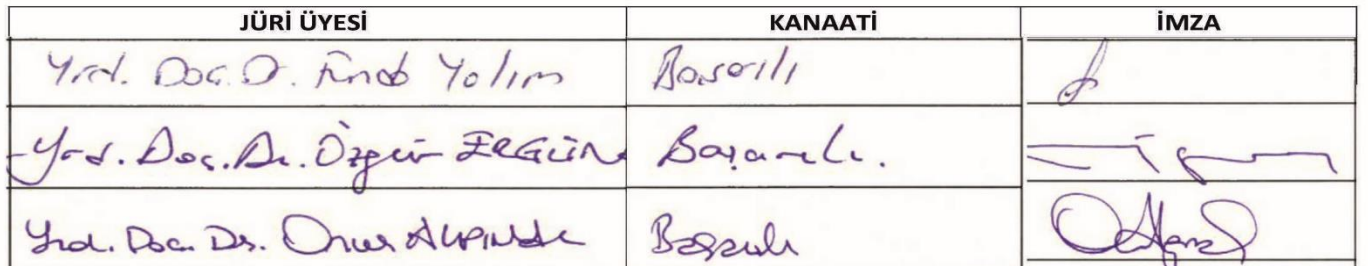 JÜRİ ÜYESİ KANAATİ İMZA
Yrd. Doç. D. Yalım Başarılı
Yrd. Doç. Dr. Özgür ERGÜN Başarılı.
Yrd. Doç. Dr. Onur Başarılı